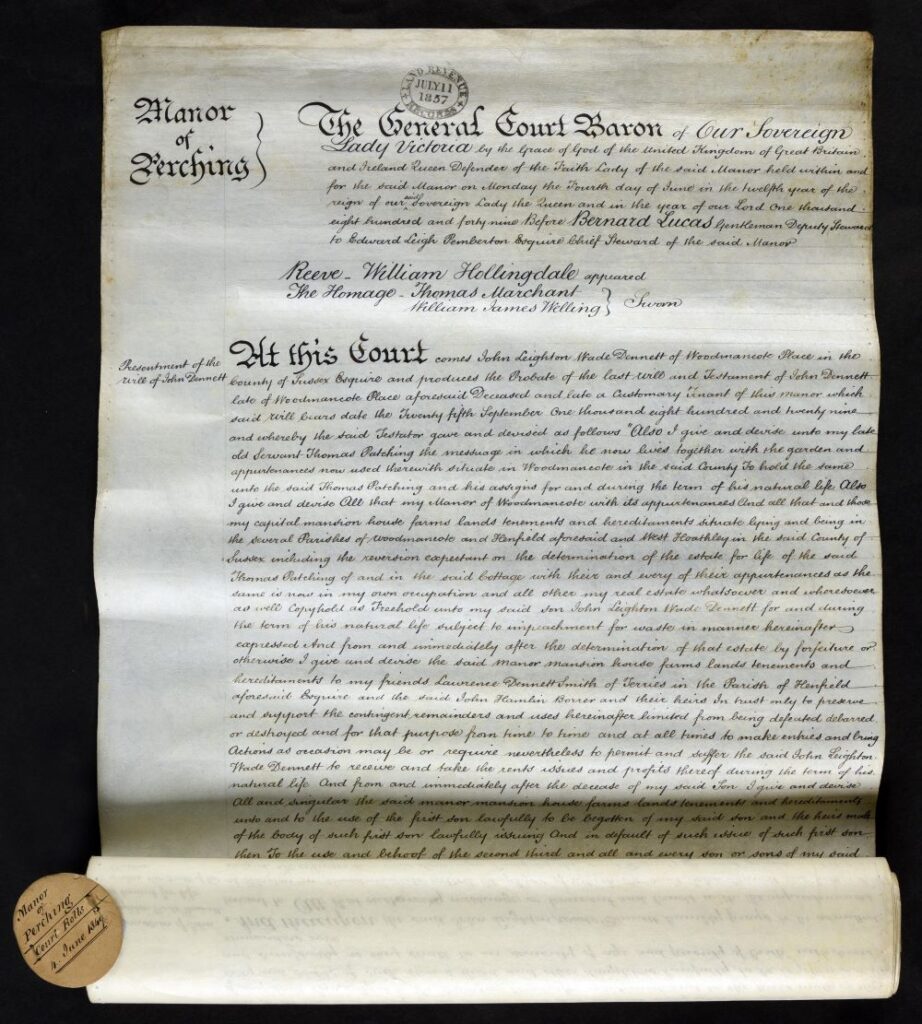 LAND REVENUE
JULY 11
1857
RECORDS
Manor
of
Perching
The General Court Baron of Our Sovereign
Lady Victoria by the Grace of God of the United Kingdom of Great Britain
and Ireland Queen Defender of the Faith Lady of the said Manor held within and
for the said Manor on Monday the Fourth day of June in the twelfth year of the
reign of our said Sovereign Lady the Queen and in the year of our Lord One thousand
eight hundred and forty nine Before Bernard Lucas Gentleman Deputy Steward
to Edward Leigh Pemberton Esquire Chief Steward of the said Manor
Reeve - William Hollingdale appeared
The Homage - Thomas Marchant
William James Welling } Sworn
Presentment of the
Will of John Dennett
At this Court comes John Leighton Wade Dennett of Woodmancote Place in the
County of Sussex Esquire and produces the Probate of the last Will and Testament of John Dennett
late of Woodmancote Place aforesaid Deceased and late a Customary Tenant of this manor which
said Will bears date the Twenty fifth September One thousand eight hundred and twenty nine
and whereby the said Testator gave and devised as follows "Also I give and devise unto my late
old Servant Thomas Patching the message in which he now lives together with the garden and
appurtenances now used therewith situate in Woodmancote in the said County To hold the same
unto the said Thomas Patching and his assigns for and during the term of his natural life Also
I give and devise All that my Manor of Woodmancote with its appurtenances And all that and those
my capital mansion house farms lands tenements and hereditaments situate lying and being in
the several Parishes of Woodmancote and Henfield aforesaid and West Hoathley in the said County of
Sussex including the reversion expectant on the determination of the estate for life of the said
Thomas Patching of and in the said Cottage with their and every of their appurtenances as the
same is now in my own occupation and all other my real estate whatsoever and wheresoever
as well Copyhold as Freehold unto my said son John Leighton Wade Dennett for and during
the term of his natural life subject to impeachment for waste in manner hereinafter
expressed And from and immediately after the determination of that estate by forfeiture or
otherwise I give and devise the said manor mansion house farms lands tenements and
hereditaments to my friends Lawrence Dennett Smith of Terries in the Parish of Henfield
aforesaid Esquire and the said John Hamlin Borrer and their heirs In trust only to preserve
and support the contingent remainders and uses hereinafter limited from being defeated debarred
or destroyed and for that purpose from time to time and at all times to make entries and bring
Actions as occasion may be or require nevertheless to permit and suffer the said John Leighton
Wade Dennett to receive and take the rents issues and profits thereof during the term of his
natural life And from and immediately after the decease of my said Son I give and devise
All and singular the said manor mansion house farms lands tenements and hereditaments
unto and to the use of the first son lawfully to be begotten of my said son and the heirs male
of the body of such first son lawfully issuing And in default of such issue of such first son
then To the use and behoof of the second third and all and every son or sons of my said
Manor
of
Perching
Court Rolls
4. June 1849